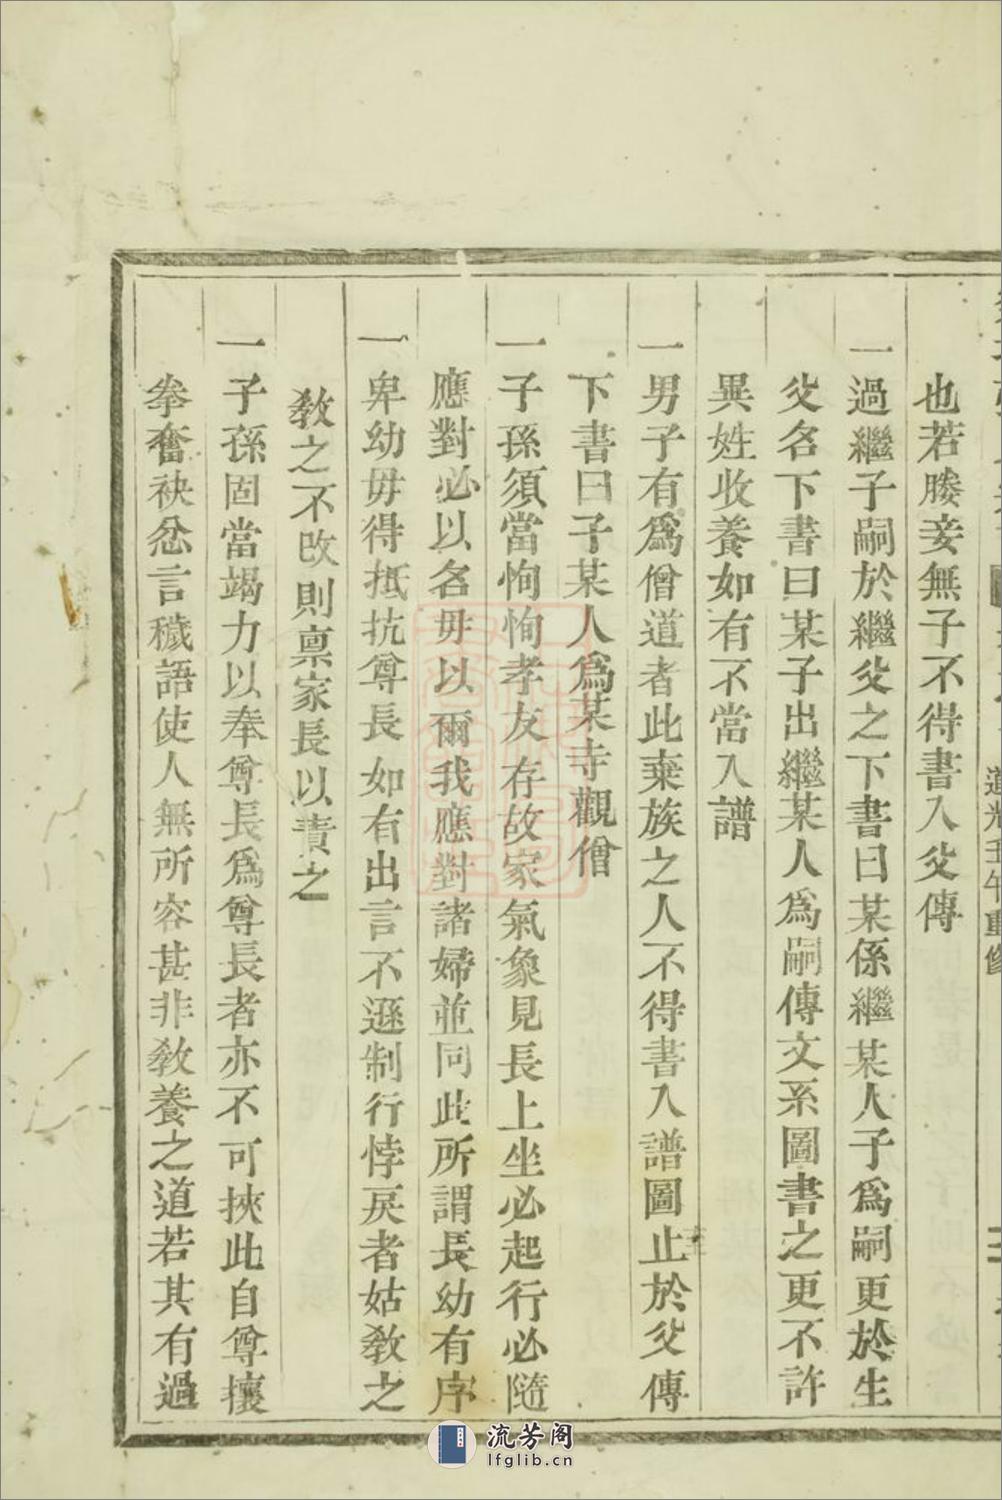 道光壬午重修
也若媵妾無子不得書入父傳
一過繼子嗣於繼父之下書曰某係繼某人子爲嗣更於生
父名下書曰某子出繼某人爲嗣傳文系圖書之更不許
異姓收養如有不當入譜
一男子有爲僧道者此棄族之人不得書入譜圖止於父傳
下書曰子某人爲某寺觀僧
一子孫須當恂恂孝友存故家氣象見長上坐必起行必隨
應對必以名毋以爾我應對諸婦並同此所謂長幼有序
一卑幼毋得抵抗尊長如有出言不遜制行悖戾者姑敎之
敎之不改則稟家長以責之
一子孫固當竭力以奉尊長爲尊長者亦不可挾此自尊攘
拳奮袂忿言穢語使人無所容甚非敎養之道若其有過
流芳阁
lfglib.cn